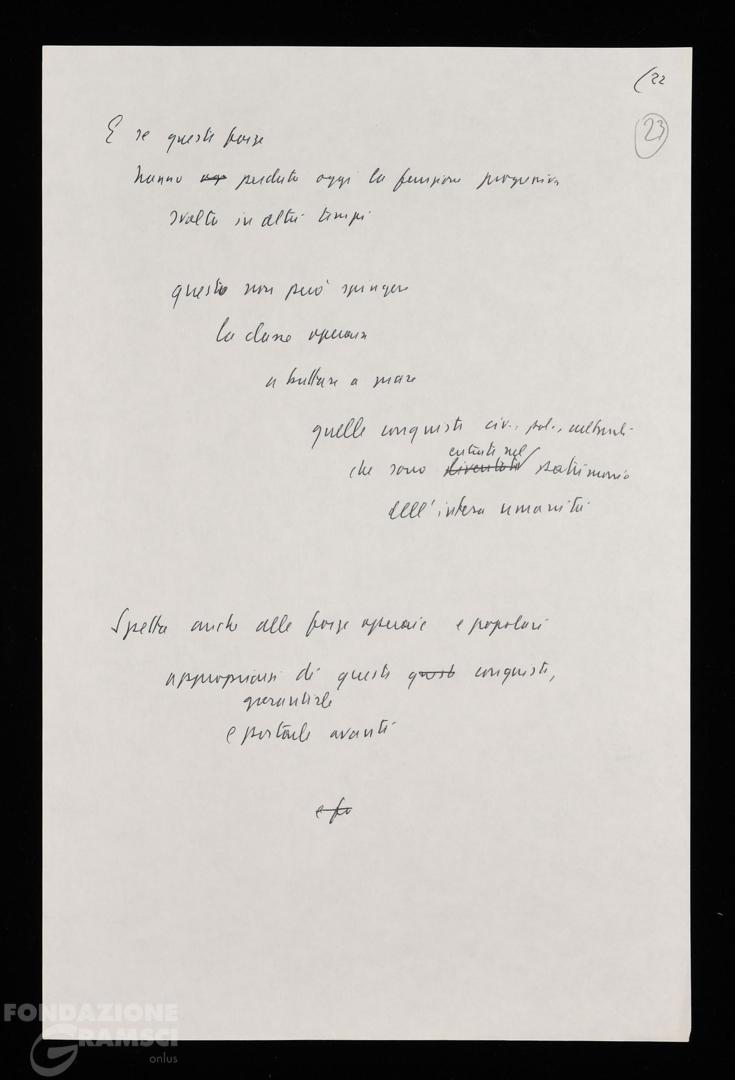 (22
23
E se queste forze
hanno og perduto oggi la funzione progressiva
svolta in altri tempi
questo non può spingere
la classe operaia
a buttare a mare
quelle conquiste civ., pol., culturali
entrate nel
che sono diventate patrimonio
dell'intera umanità
Spetta anche alle forze operaie e popolari
appropriarsi di queste queste conquiste,
garantirle
e portarle avanti
e fo
FONDAZIONE
GRAMSCI
onlus